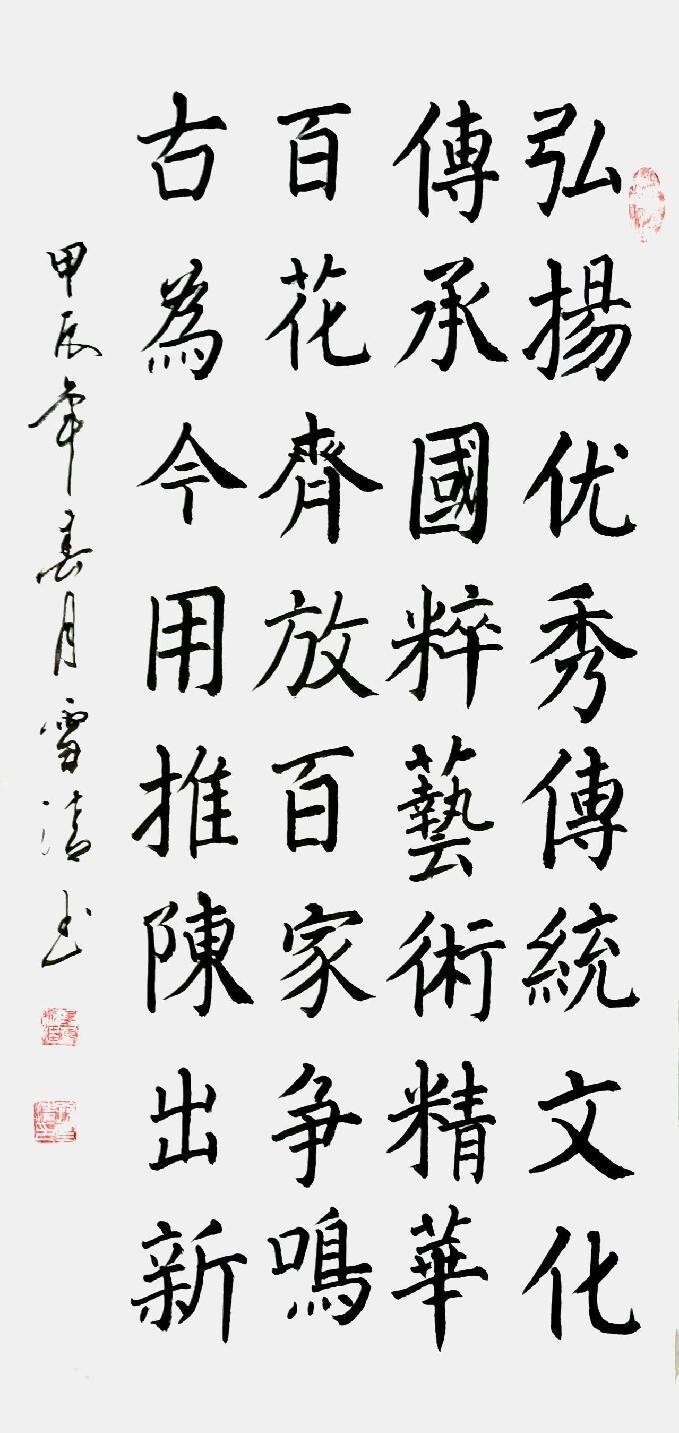 弘揚优秀傳統文化
傳承國粹藝術精華
百花齊放百家争鳴
古為今用推陳出新
甲辰年春月雪清书